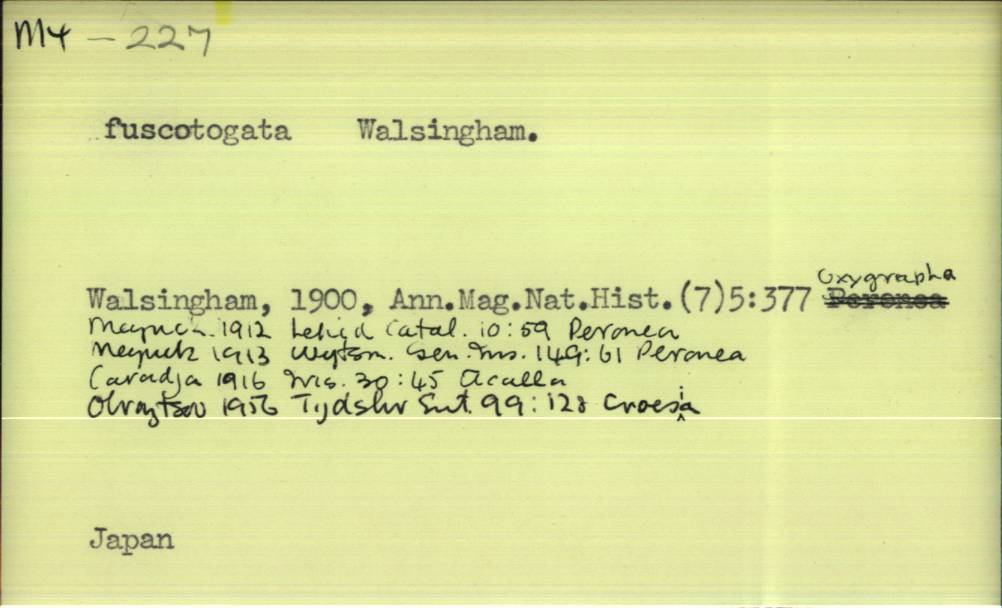 M4 - 227
fuscotogata Walsingham.
Oxygrapha
Walsingham, 1900, Ann.Mag.Nat.Hist.(7)5:377 Peronea
Meyrick 1912 Lepid Catal. 10:59 Peronea
Meyrick 1913 Wytsm. Gen. Ins. 149:61 Peronea
Caradja 1916 Iris. 30:45 Acalla
Obraztsov 1956 Tijdshr Ent. 99:128 Croesia
Japan